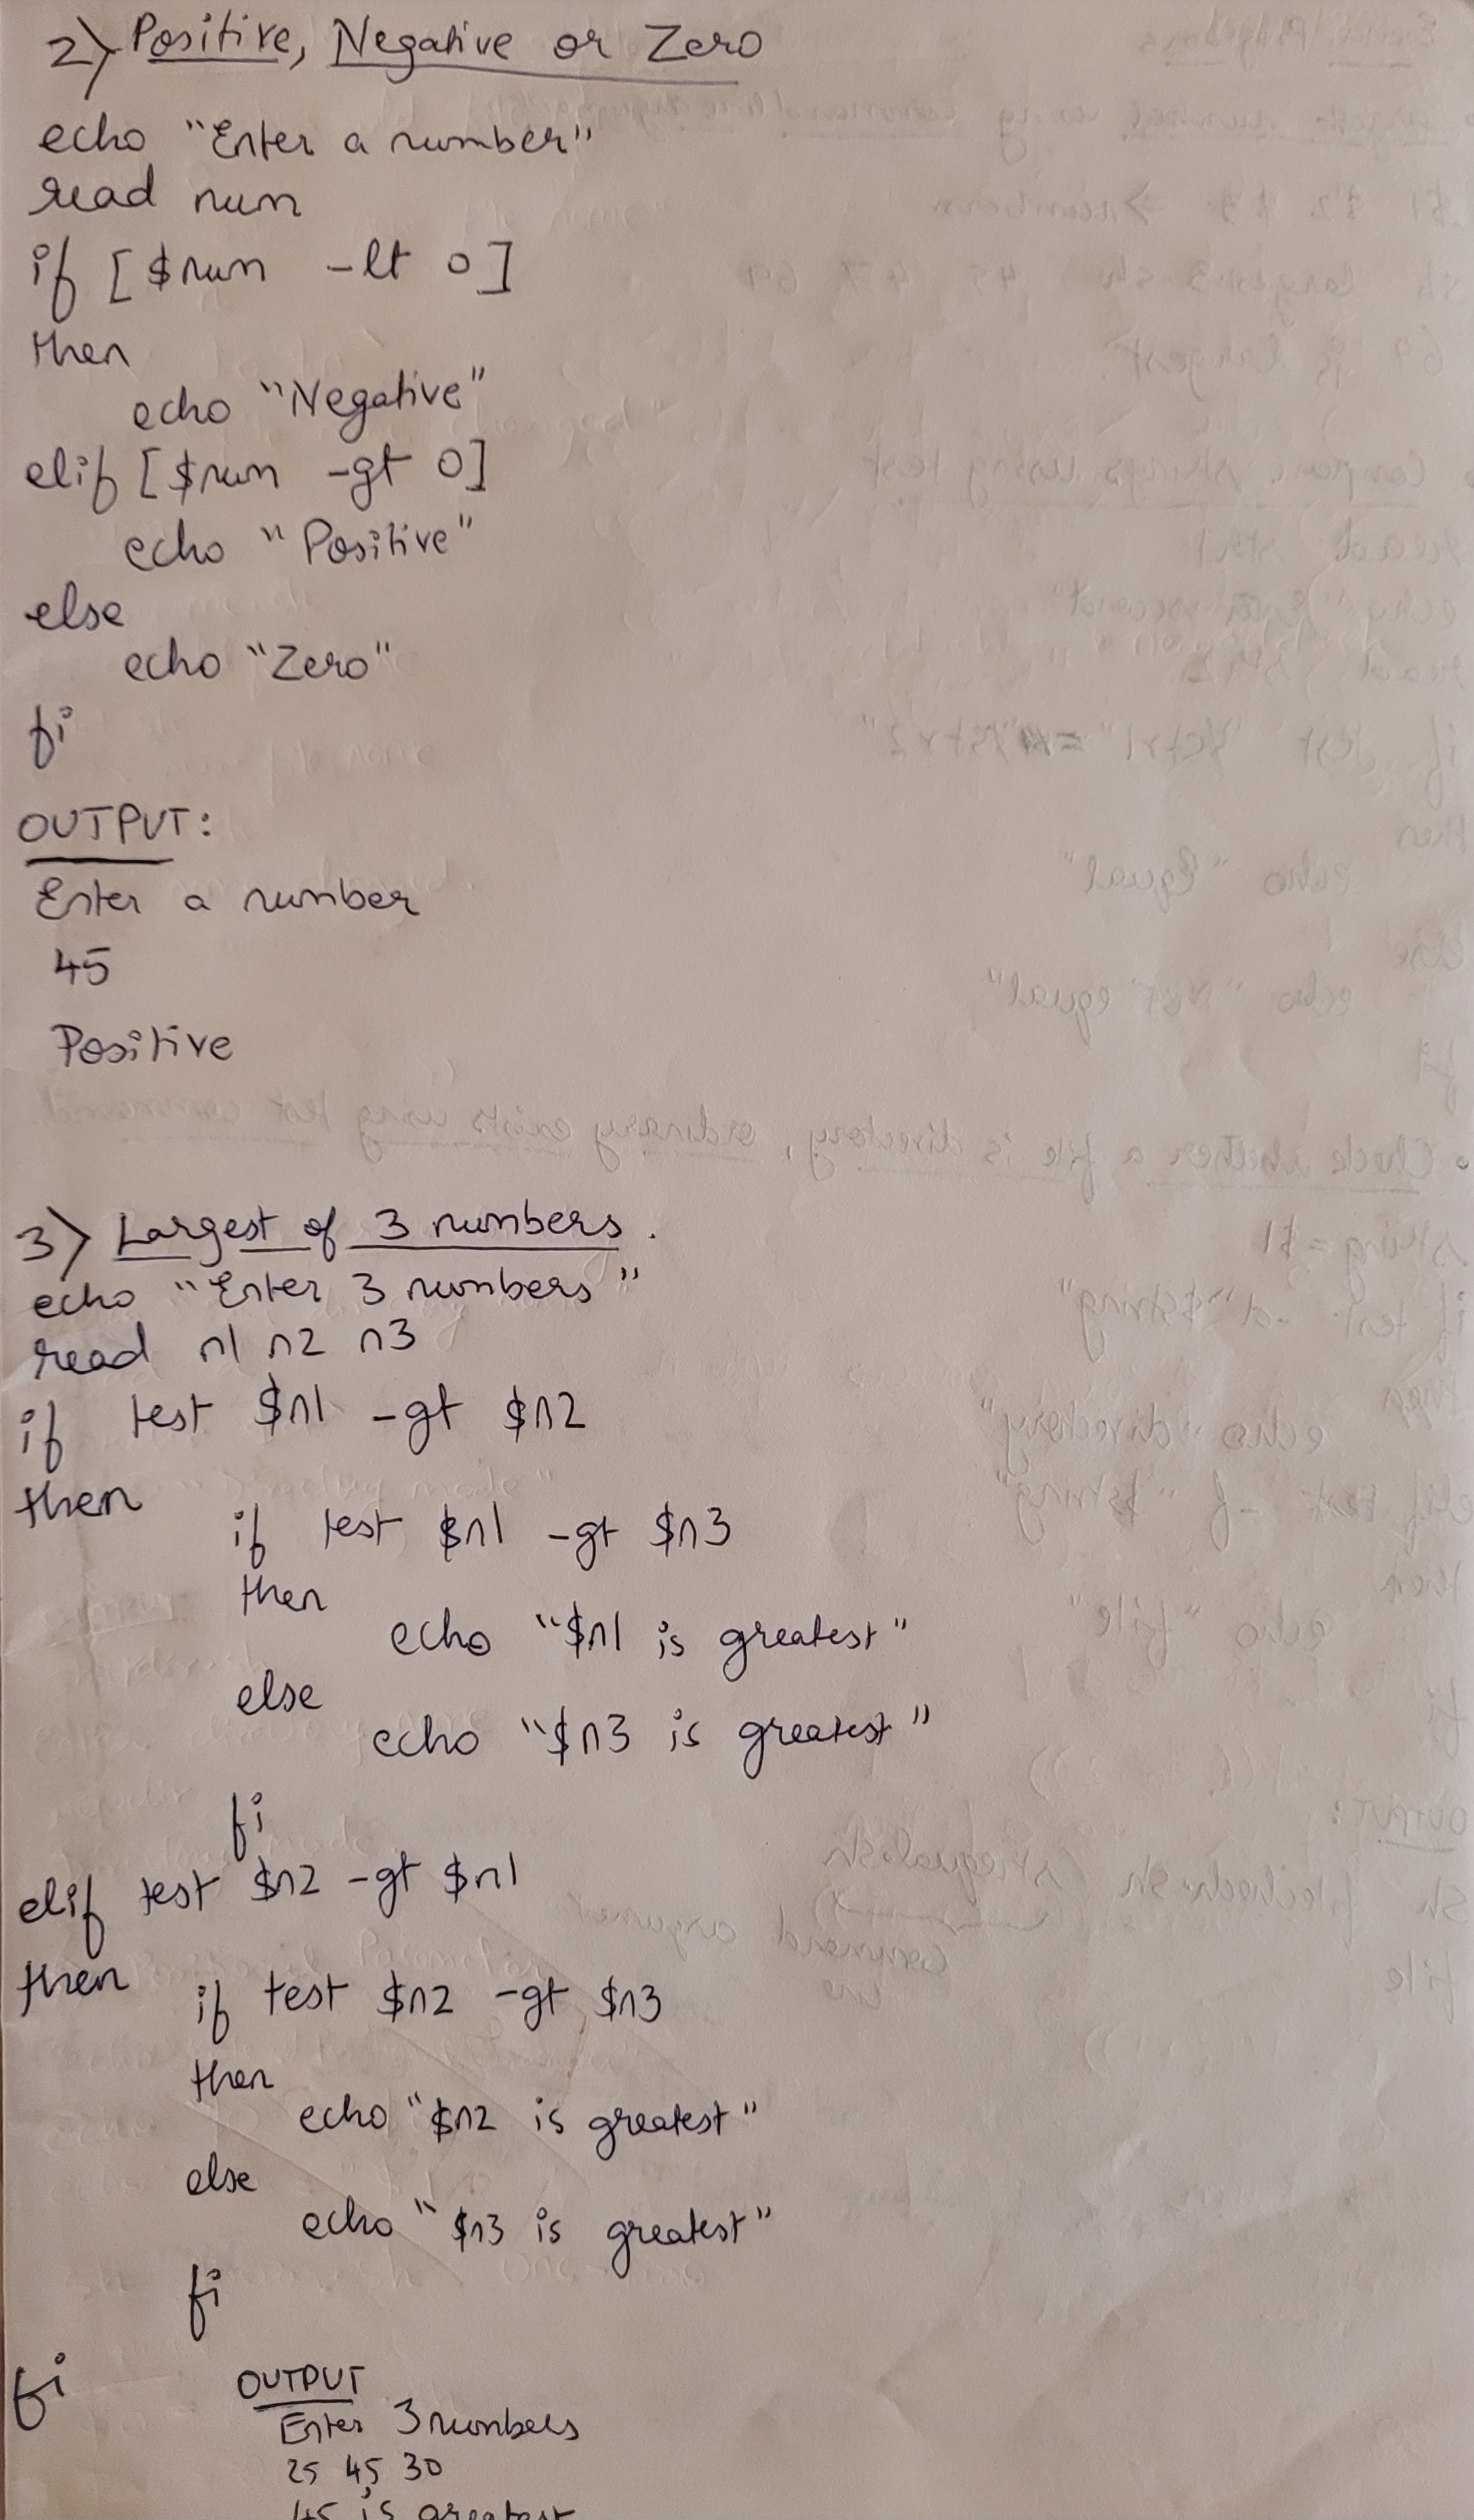 2) Positive, Negative or Zero
echo "Enter a number"
read num
if [$num -lt 0]
then
echo "Negative"
elif [$num -gt 0]
echo "Positive"
else
echo "Zero"
fi
OUTPUT:
Enter a number
45
Positive
3) Largest of 3 numbers.
echo "Enter 3 numbers"
read n1 n2 n3
if test $n1 -gt $n2
then
if test $n1 -gt $n3
then
echo "$n1 is greatest"
else
echo "$n3 is greatest"
fi
elif test $n2 -gt $n1
then
if test $n2 -gt $n3
then
echo "$n2 is greatest"
else
echo "$n3 is greatest"
fi
fi
OUTPUT
Enter 3 numbers
25 45 30
45 is greatest